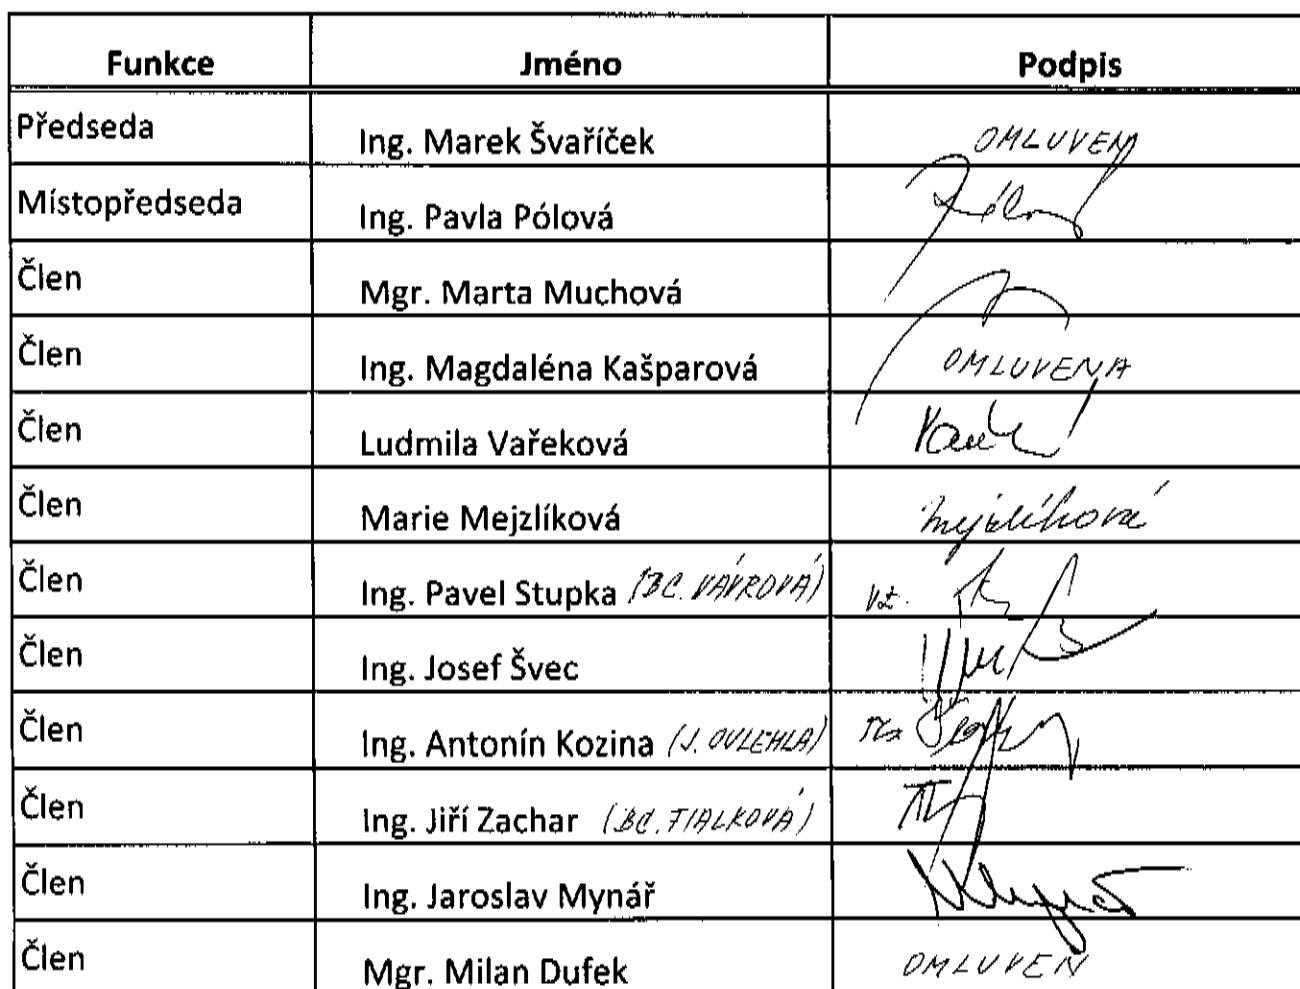 Funkce Jméno Podpis
Předseda Ing. Marek Švaříček OMLUVEN
Místopředseda Ing. Pavla Pólová
Člen Mgr. Marta Muchová
Člen Ing. Magdaléna Kašparová OMLUVENA
Člen Ludmila Vařeková
Člen Marie Mejzlíková Mejzlíková
Člen Ing. Pavel Stupka (BC. VÁVROVÁ)
Člen Ing. Josef Švec
Člen Ing. Antonín Kozina (J. OVLEHLA)
Člen Ing. Jiří Zachar (BC. FIALKOVÁ)
Člen Ing. Jaroslav Mynář
Člen Mgr. Milan Dufek OMLUVEN